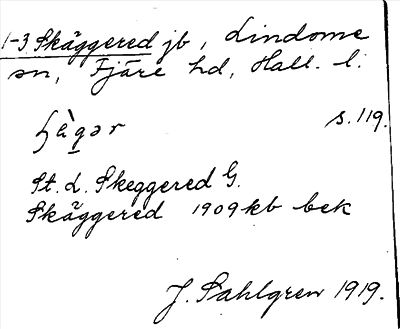 1-3 Skäggered jb, Lindome
sn, Fjäre hd, Hall. l.
s. 119.
St. L. Skeggered G.
Skäggered 1909 kb bek
J. Sahlgren 1919.